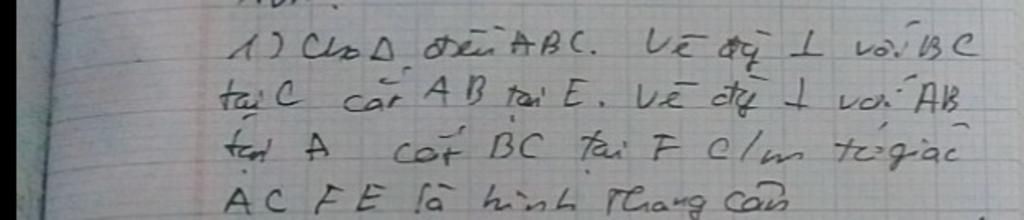 1) Cho Δ đều ABC. Vẽ đg ⊥ với BC
tại C cắt AB tại E. Vẽ đg ⊥ với AB
tại A cắt BC tại F C/m tứ giác
ACFE là hình thang cân